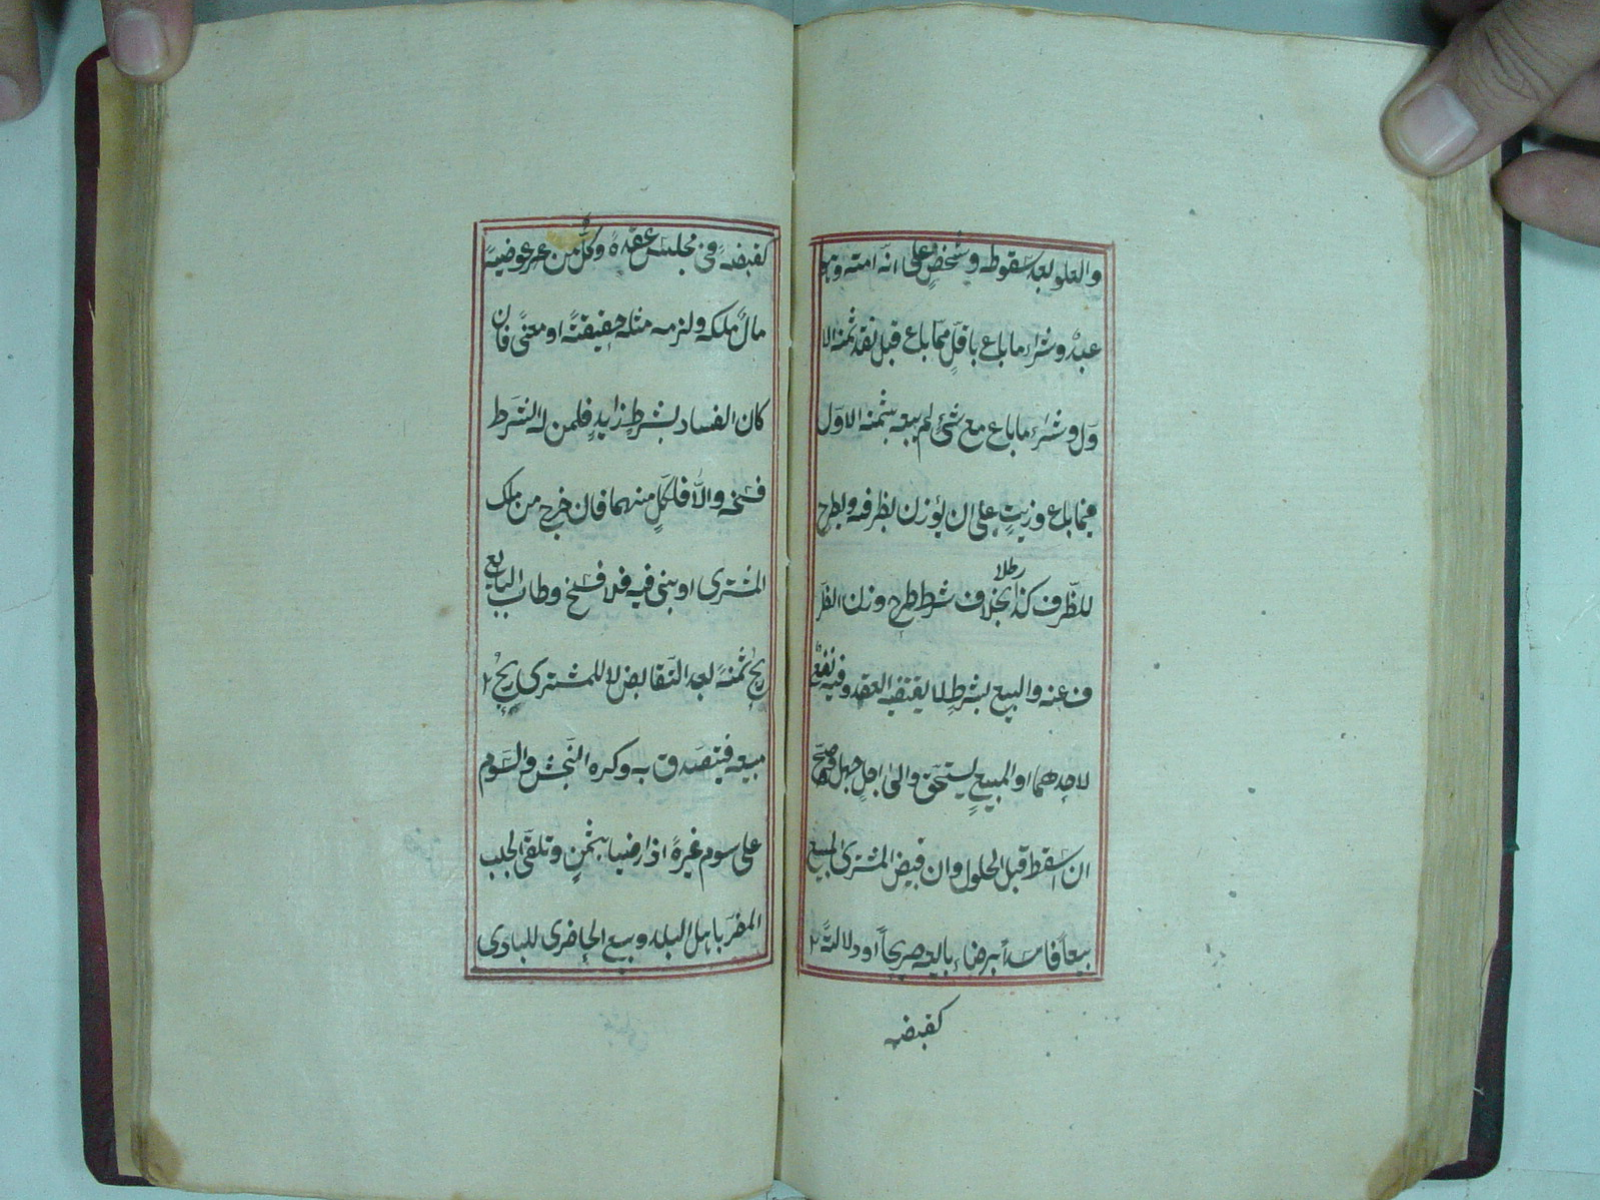 والعلو بعد سقوطه وشخص على انه امته وهو
عبد وشراء ما باع باقل مما باع قبل نقد ثمنه الا
ول وشراء ما باع مع شئ لم يبعه بثمنه الاول
فيما باع وزيت على ان يوزن بظرفه ويطرح
للظرف كذا رطلا بخلاف شرط طرح وزن الظر
ف عنه والبيع بشرط لا يقتضيه العقد وفيه نفع
لاحدهما او المبيع يستحق والى اجل جهل صح
ان اسقط قبل الحلول وان قبض المشترى المبيع
بيعا فاسدا برضاء بايعه صريحا او دلالة
كقبضه
كقبضه فى مجلس عقده وكل من عوضيه
مال ملكه ولزمه مثله حقيقة او معنى فان
كان الفساد بشرط زايد فلمن له الشرط
فسخه والا فلكل منهما فان خرج من ملك
المشترى او بنى فيه فلا فسخ وطاب للبايع
ربح ثمنه بعد التقابض لا للمشترى ربح
مبيعه فيتصدق به وكره النجش والسوم
على سوم غيره اذا رضيا بثمن وتلقى الجلب
المضر باهل البلد وبيع الحاضرى للبادى